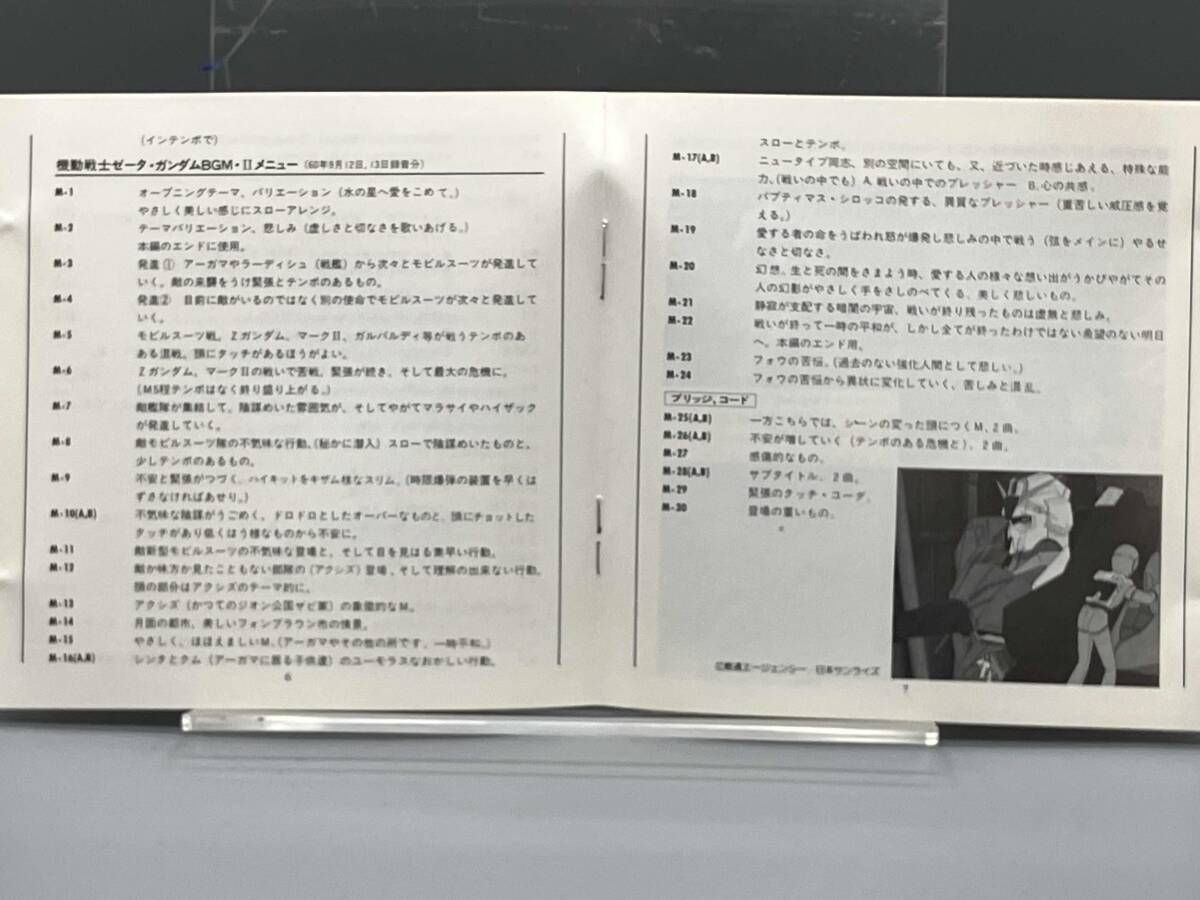 (インテンポで)
機動戦士ゼータ・ガンダムBGM・IIメニュー (60年9月12日、13日録音分)
M-1 オープニングテーマ、バリエーション (水の星へ愛をこめて。)
やさしく美しい感じにスローアレンジ。
M-2 テーマバリエーション、悲しみ (虚しさと切なさを歌いあげる。)
本編のエンドに使用。
M-3 発進① アーガマやラーディシュ (戦艦) から次々とモビルスーツが発進して
いく。敵の来襲をうけ緊張とテンポのあるもの。
M-4 発進② 目前に敵がいるのではなく別の使命でモビルスーツが次々と発進して
いく。
M-5 モビルスーツ戦。Zガンダム、マークII、ガルバルディ等が戦うテンポのあ
ある混戦。頭にタッチがあるほうがよい。
M-6 Zガンダム、マークIIの戦いで苦戦。緊張が続き、そして最大の危機に。
(M5程テンポはなく終り盛り上がる。)
M-7 敵艦隊が集結して、陰謀めいた雰囲気が、そしてやがてマラサイやハイザック
が発進していく。
M-8 敵モビルスーツ隊の不気味な行動、(秘かに潜入) スローで陰謀めいたものと、
少しテンポのあるもの。
M-9 不安と緊張がつづく、ハイキットをキザム様なスリム。(時限爆弾の装置を早くは
ずさなければあせり。)
M-10(A,B) 不気味な陰謀がうごめく、ドロドロとしたオーバーなものと、頭にチョットした
タッチがあり低くはう様なものから不安に。
M-11 敵新型モビルスーツの不気味な登場と、そして目を見はる素早い行動。
M-12 敵か味方か見たこともない部隊の (アクシズ) 登場、そして理解の出来ない行動。
頭の部分はアクシズのテーマ的に。
M-13 アクシズ (かつてのジオン公国ザビ軍) の象徴的なM。
M-14 月面の都市、美しいフォンブラウン市の情景。
M-15 やさしく、ほほえましいM。(アーガマやその他の所です。一時平和。)
M-16(A,B) シンタとクム (アーガマに居る子供達) のユーモラスなおかしい行動。
6
スローとテンポ。
M-17(A,B) ニュータイプ同志、別の空間にいても、又、近づいた時感じあえる、特殊な能
力、(戦いの中でも) A.戦いの中でのプレッシャー B.心の共感。
M-18 パプティマス・シロッコの発する、異質なプレッシャー (重苦しい威圧感を覚
える。)
M-19 愛する者の命をうばわれ怒が爆発し悲しみの中で戦う (弦をメインに) やるせ
なさと切なさ。
M-20 幻想。生と死の間をさまよう時、愛する人の様々な想い出がうかびやがてその
人の幻影がやさしく手をさしのべてくる、美しく悲しいもの。
M-21 静寂が支配する暗闇の宇宙、戦いが終り残ったものは虚無と悲しみ。
M-22 戦いが終って一時の平和が、しかし全てが終ったわけではない希望のない明日
へ。本編のエンド用。
M-23 フォウの苦悩。(過去のない強化人間として悲しい。)
M-24 フォウの苦悩から異状に変化していく、苦しみと混乱。
ブリッジ、コード
M-25(A,B) 一方こちらでは、シーンの変った頭につくM、2曲。
M-26(A,B) 不安が増していく (テンポのある危機と)、2曲。
M-27 感傷的なもの。
M-28(A,B) サブタイトル、2曲。
M-29 緊張のタッチ・コーダ。
M-30 登場の重いもの。
©創通エージェンシー 日本サンライズ
7